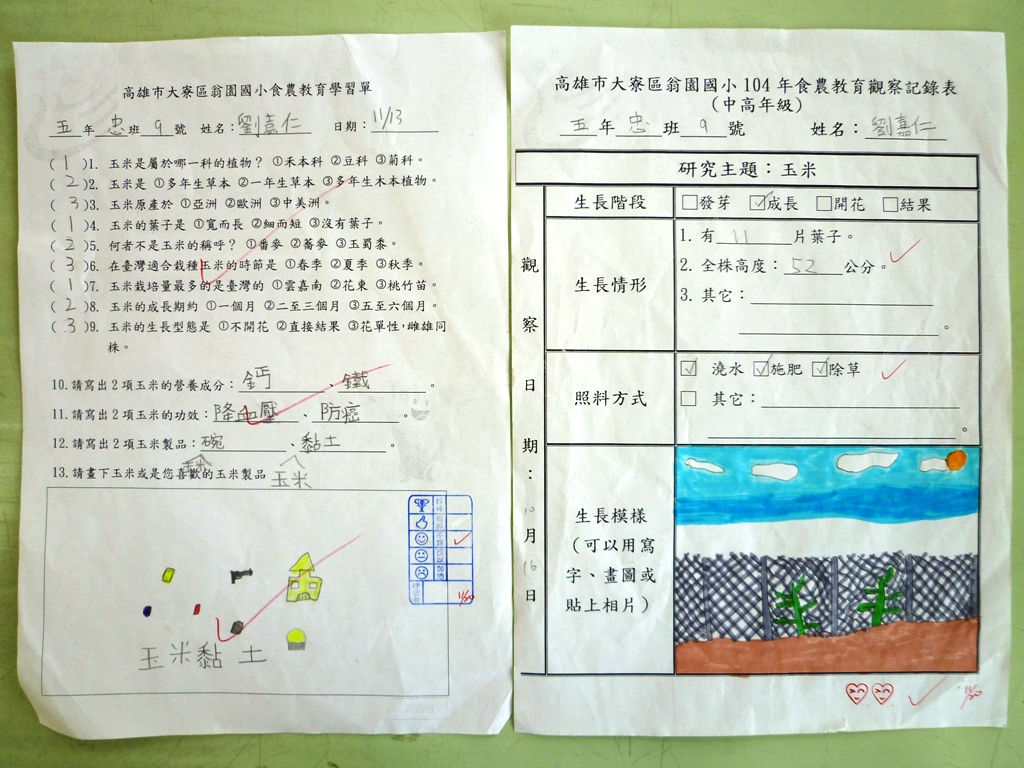 高雄市大寮區翁園國小食農教育學習單
五 年 忠 班 9 號 姓名：劉嘉仁 日期：11/13
( 1 )1. 玉米是屬於哪一科的植物？ ①禾本科 ②豆科 ③菊科。
( 2 )2. 玉米是 ①多年生草本 ②一年生草本 ③多年生木本植物。
( 3 )3. 玉米原產於 ①亞洲 ②歐洲 ③中美洲。
( 1 )4. 玉米的葉子是 ①寬而長 ②細而短 ③沒有葉子。
( 2 )5. 何者不是玉米的稱呼？ ①番麥 ②蕎麥 ③玉蜀黍。
( 3 )6. 在臺灣適合栽種玉米的時節是 ①春季 ②夏季 ③秋季。
( 1 )7. 玉米栽培量最多的是臺灣的 ①雲嘉南 ②花東 ③桃竹苗。
( 2 )8. 玉米的成長期約 ①一個月 ②二至三個月 ③五至六個月。
( 3 )9. 玉米的生長型態是 ①不開花 ②直接結果 ③花單性，雌雄同
株。
10.請寫出2項玉米的營養成分：鈣、鐵。
11.請寫出2項玉米的功效：降血壓、防癌。
12.請寫出2項玉米製品：碗、黏土。
玉米
13.請畫下玉米或是您喜歡的玉米製品
玉米
11/20
玉米黏土
高雄市大寮區翁園國小104年食農教育觀察記錄表
（中高年級）
五 年 忠 班 9 號 姓名：劉嘉仁
研究主題：玉米
觀察日期：10月16日
生長階段
□發芽 ☑成長 □開花 □結果
生長情形
1. 有 11 片葉子。
2. 全株高度：52 公分。
3. 其它：
。
照料方式
☑ 澆水 ☑施肥 ☑除草
□ 其它：
。
生長模樣
（可以用寫
字、畫圖或
貼上相片）
11/20